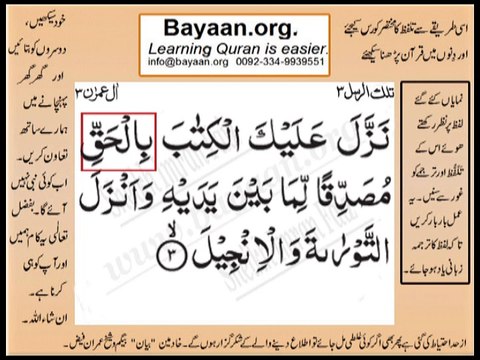 Bayaan.org.
Learning Quran is easier.
info@bayaan.org 0092-334-9939551
اسی طریقے سے تلفظ کا مختصر کورس کیجئے
اور دِنوں میں قرآن پڑھنا سیکھئے
تلك الرسل ٣
اٰل عمرٰن ٣
نَزَّلَ عَلَيْكَ الْكِتٰبَ بِالْحَقِّ
مُصَدِّقًا لِّمَا بَيْنَ يَدَيْهِ وَاَنْزَلَ
التَّوْرٰىةَ وَالْاِنْجِيْلَ ۙ‏ ٣
نمایاں کئے گئے
لفظ پر نظر رکھتے
ھوئے اس کے
تلفّظ اور ترجمے کو
غور سے سنیں۔ یہ
عمل بار بار کریں
تا کہ لفظ کا ترجمہ
زبانی یاد ہو جائے۔
خود سیکھیں،
دوسروں کو بتائیں
اور گھر گھر
پہنچانے میں
ہمارے ساتھ
تعاون کریں۔
اب کوئی نبی نہیں
آئے گا۔ بفضل
تعالٰی یہ کام ہمیں
اور آپ کو ہی
کرنا ہے۔
ان شاء اللہ۔
از حد احتیاط کی گئی ہے پھر بھی اگر کوئی غلطی مل جائے تو اطلاع دینے والے کے شکر گزار ہوں گے۔ خادمین "بیان" بیگم و شیخ عمران فیض۔